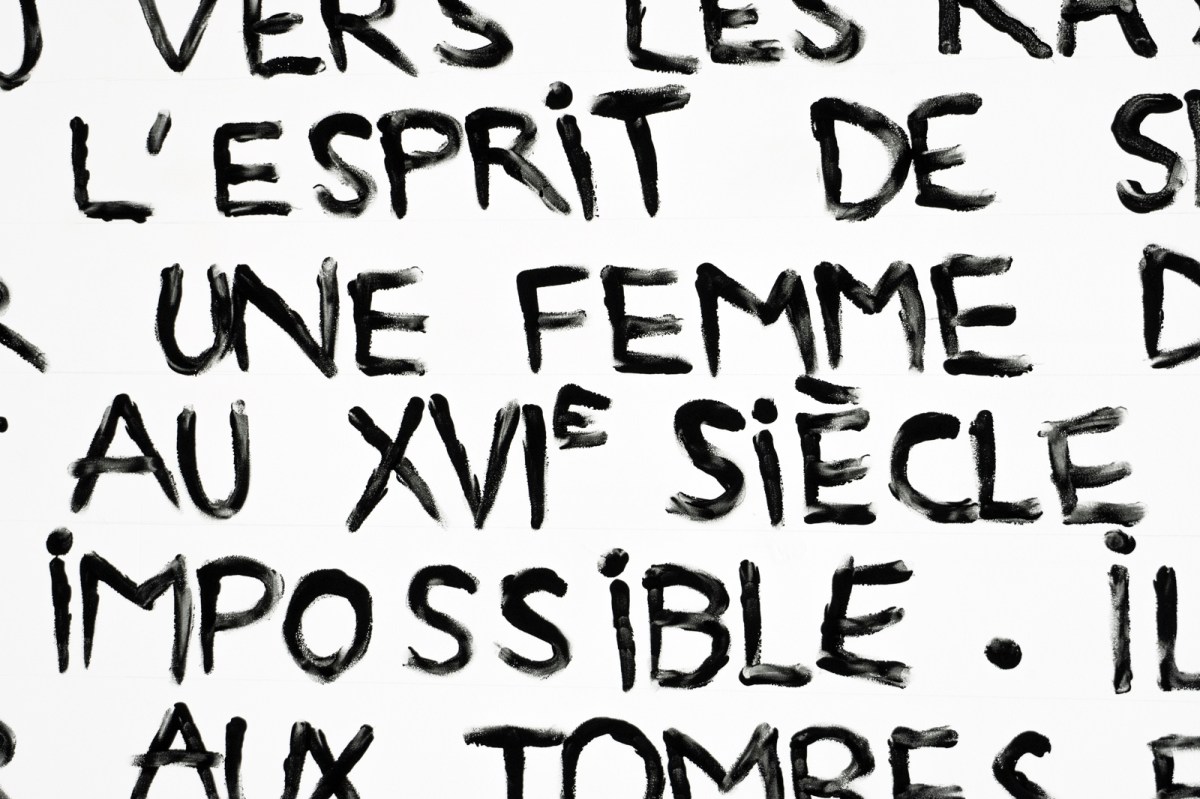 VERS LES
L'ESPRiT DE
UNE FEMME
AU XVIᴱ SiÈCLE
iMPOSSiBLE. iL
AUX TOMBES